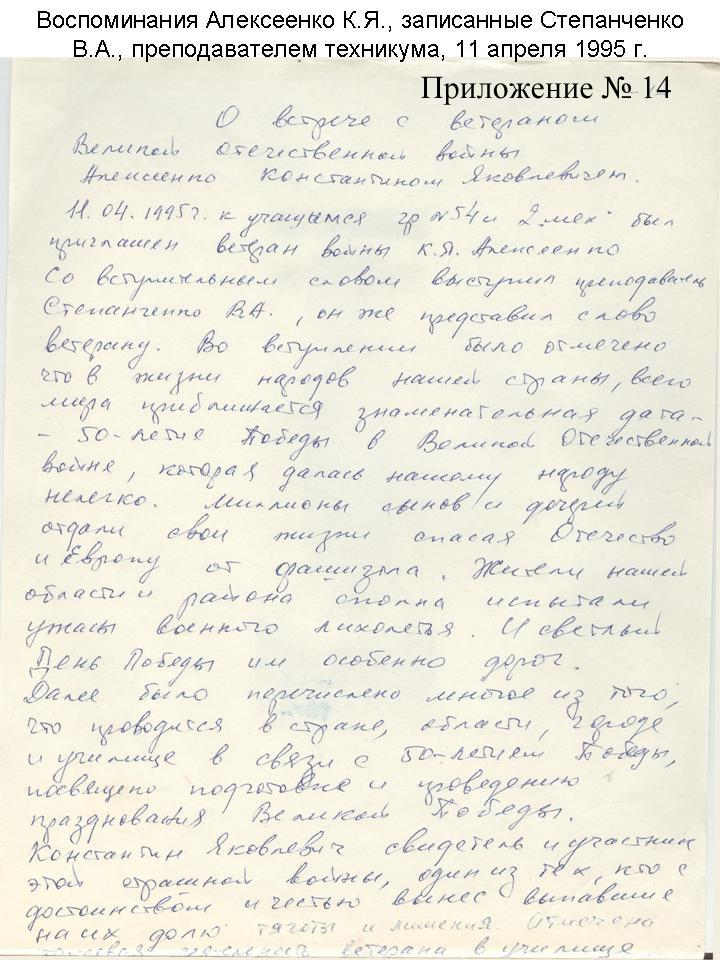 Воспоминания Алексеенко К.Я., записанные Степанченко
В.А., преподавателем техникума, 11 апреля 1995 г.
Приложение № 14
О встрече с ветераном
Великой отечественной войны
Алексеенко Константином Яковлевичем.
11.04.1995г. к учащимся гр №54 и 2 "мех" был
приглашен ветеран войны К.Я. Алексеенко
Со вступительным словом выступил преподаватель
Степанченко В.А., он же представил слово
ветерану. Во вступлении было отмечено
что в жизни народов нашей страны, всего
мира приближается знаменательная дата-
- 50-летие Победы в Великой Отечественной
войне, которая далась нашему народу
нелегко. Миллионы сынов и дочерей
отдали свои жизни спасая Отечество
и Европу от фашизма. Жители нашей
области и района сполна испытали
ужасы военного лихолетья. И светлый
День Победы им особенно дорог.
Далее было перечислено многое из того,
что проводится в стране, области, городе
и училище в связи с 50-летием Победы,
посвящено подготовке и проведению
празднования Великой Победы.
Константин Яковлевич свидетель и участник
этой страшной войны, один из тех, кто с
достоинством и честью вынес выпавшие
на их долю тяготы и лишения. Отмечена
трудовая ветерана в училище